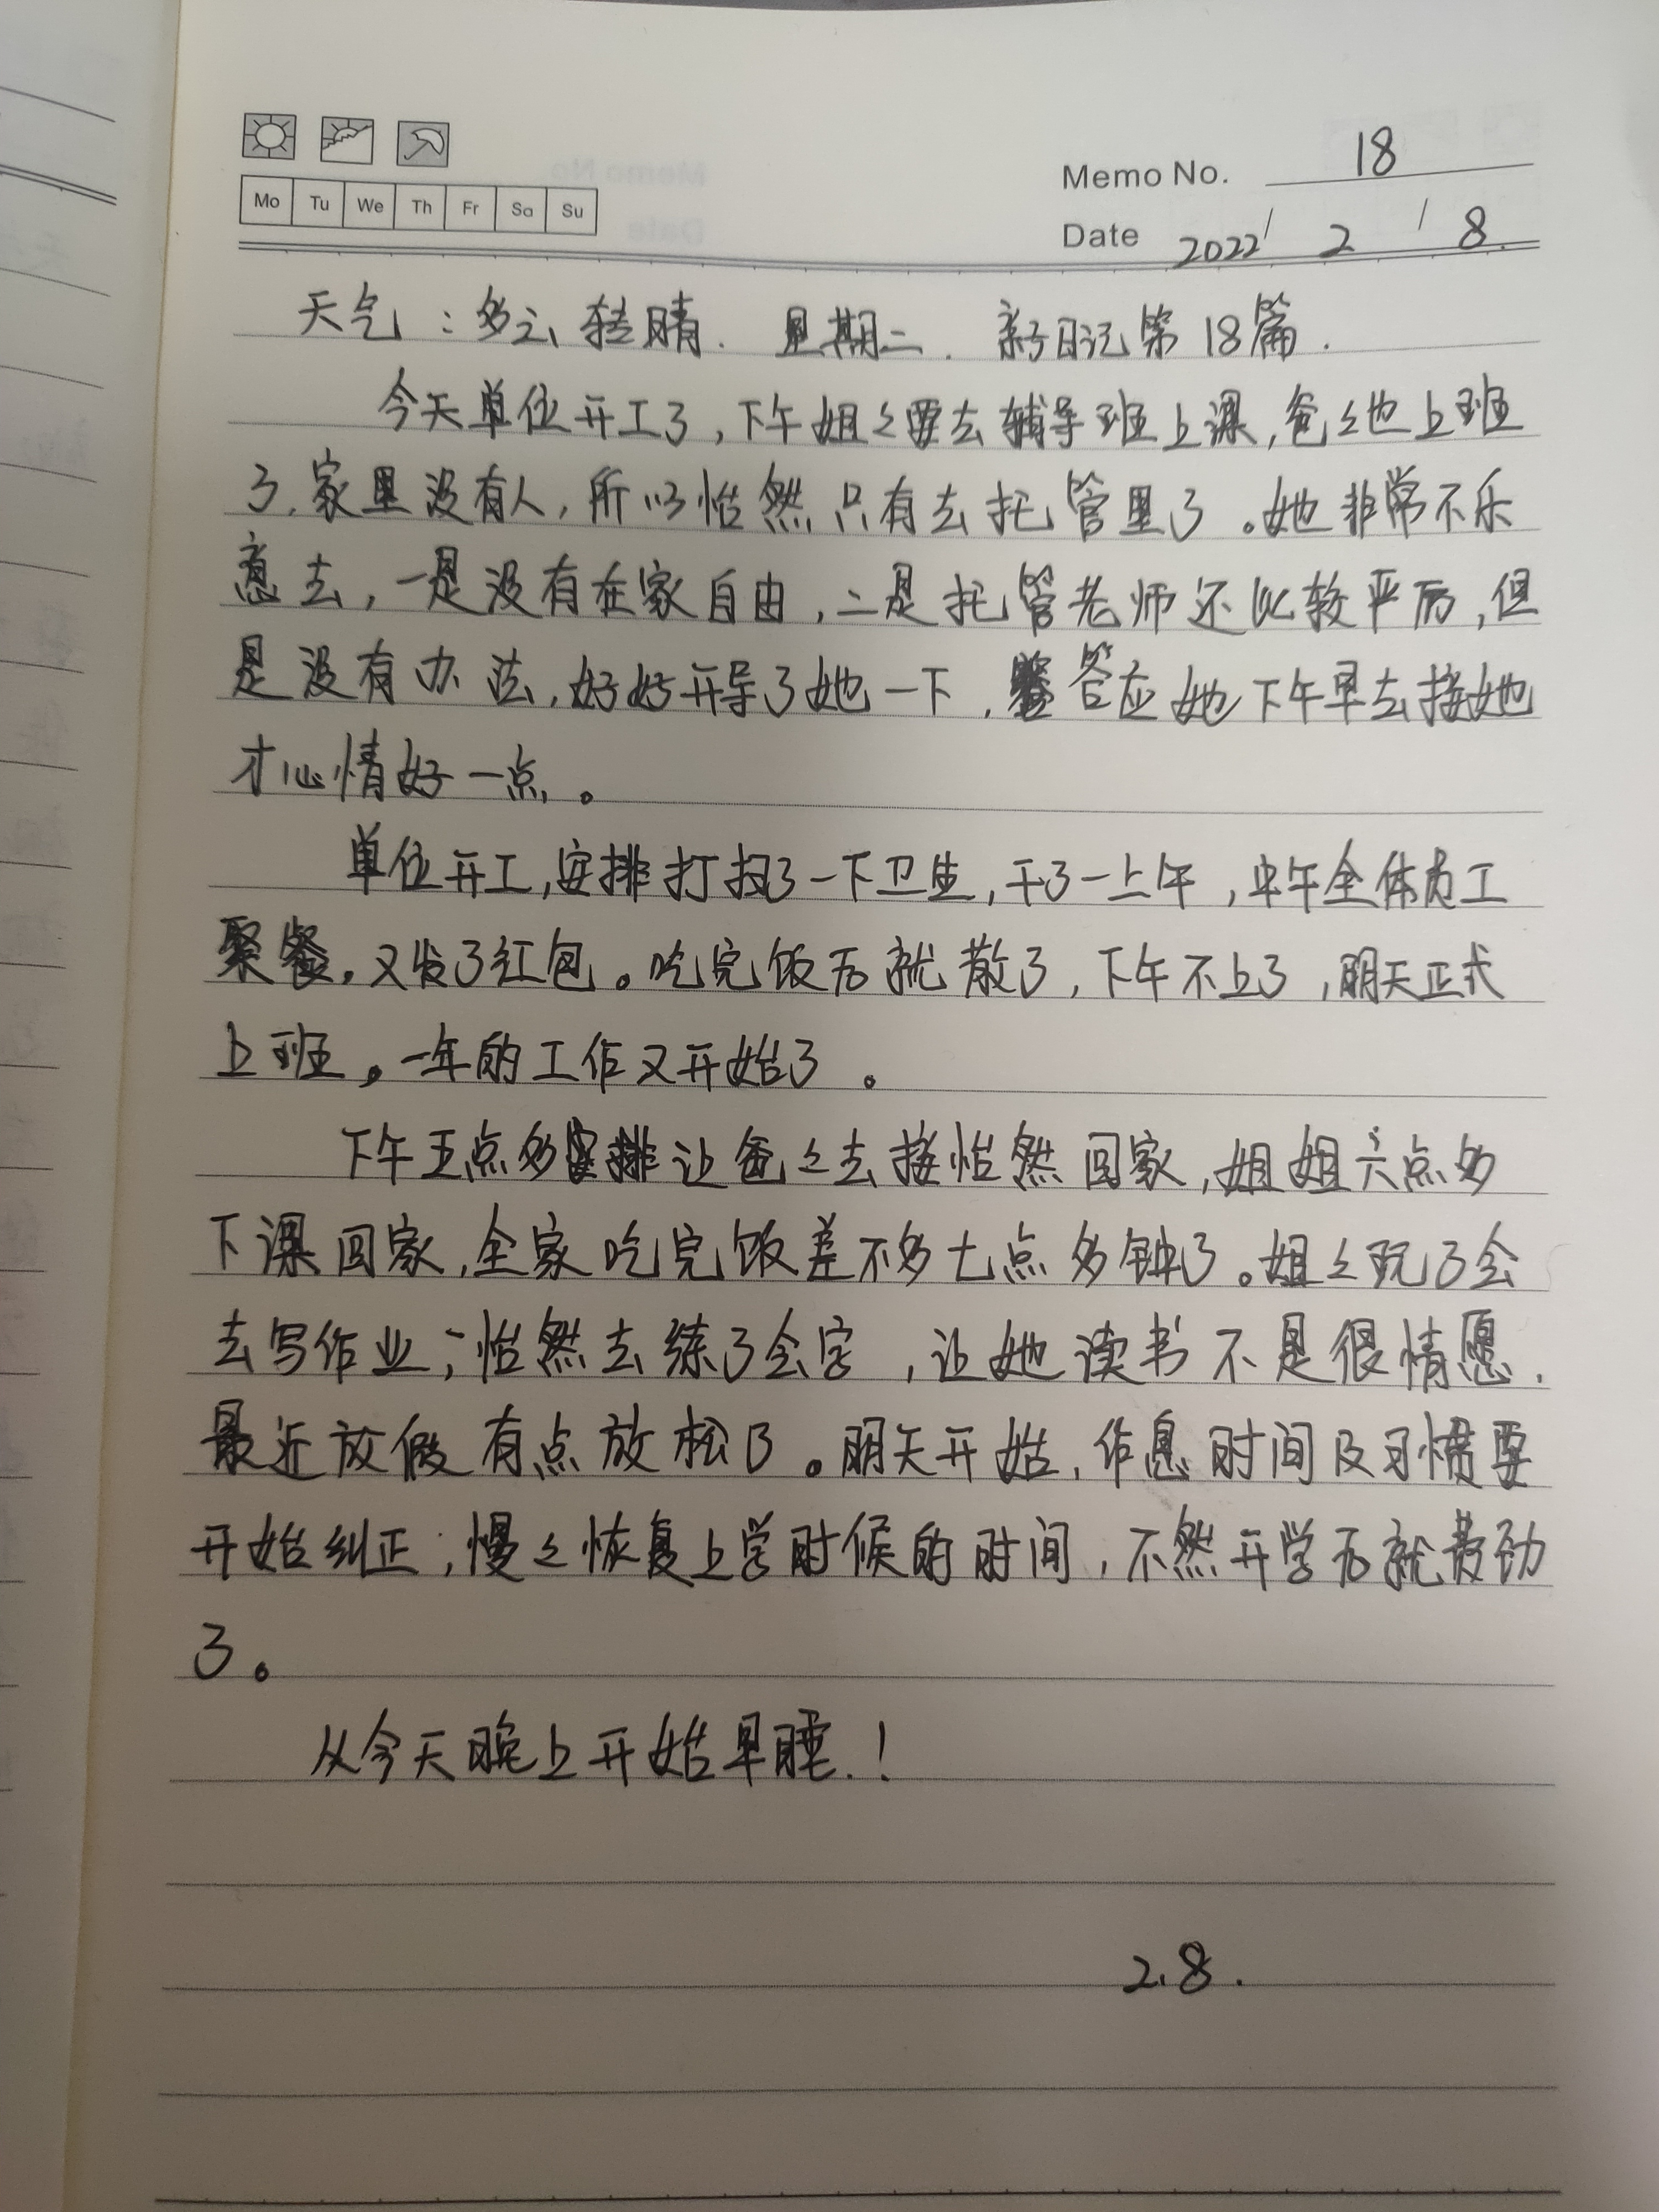 Memo No. 18
Mo Tu We Th Fr Sa Su
Date 2022 / 2 / 8.
天气：多云转晴. 星期二. 新日记第18篇.
今天单位开工了,下午姐々要去辅导班上课,爸々也上班
了.家里没有人,所以怡然只有去托管里了。她非常不乐
意去,一是没有在家自由,二是托管老师还比较严厉,但
是没有办法,好好开导了她一下,答应她下午早去接她
才心情好一点。
单位开工,安排打扫了一下卫生,干了一上午,中午全体员工
聚餐,又发了红包。吃完饭后就散了,下午不上了,明天正式
上班。一年的工作又开始了。
下午五点多安排让爸々去接怡然回家,姐姐六点多
下课回家,全家吃完饭差不多七点多钟了。姐々玩了会
去写作业;怡然去练了会字,让她读书不是很情愿.
最近放假有点放松了。明天开始,作息时间及习惯要
开始纠正;慢々恢复上学时候的时间,不然开学后就费劲
了。
从今天晚上开始早睡.!
2.8.